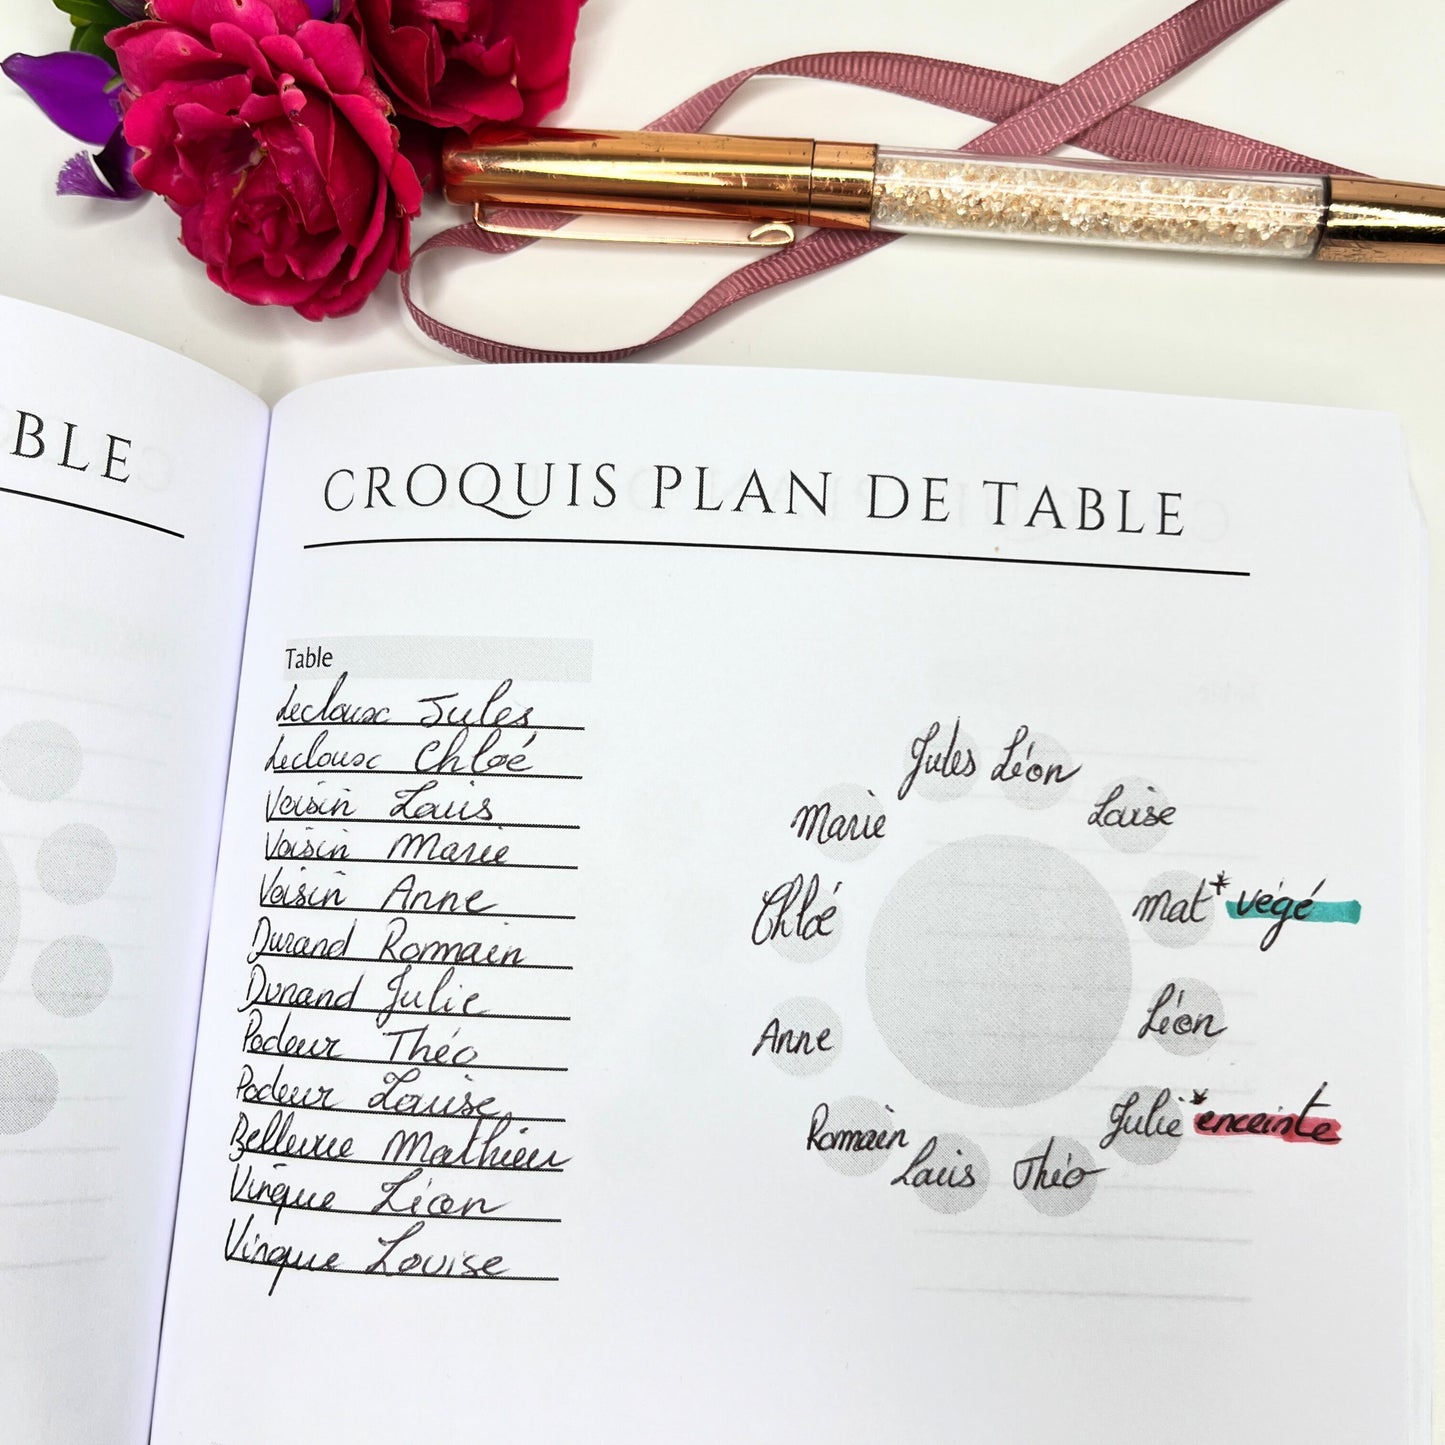 BLE
CROQUIS PLAN DE TABLE
Table
Leclousc Jules
Leclousc Chloé
Voisin Louis
Voisin Marie
Voisin Anne
Durand Romain
Durand Julie
Théo
Louise
Bellevue Mathieu
Vinque Léon
Vinque Louise
Jules Léon
Marie Louise
Chloé Mat* végé
Anne Léon
Romain Julie *enceinte
Louis Théo